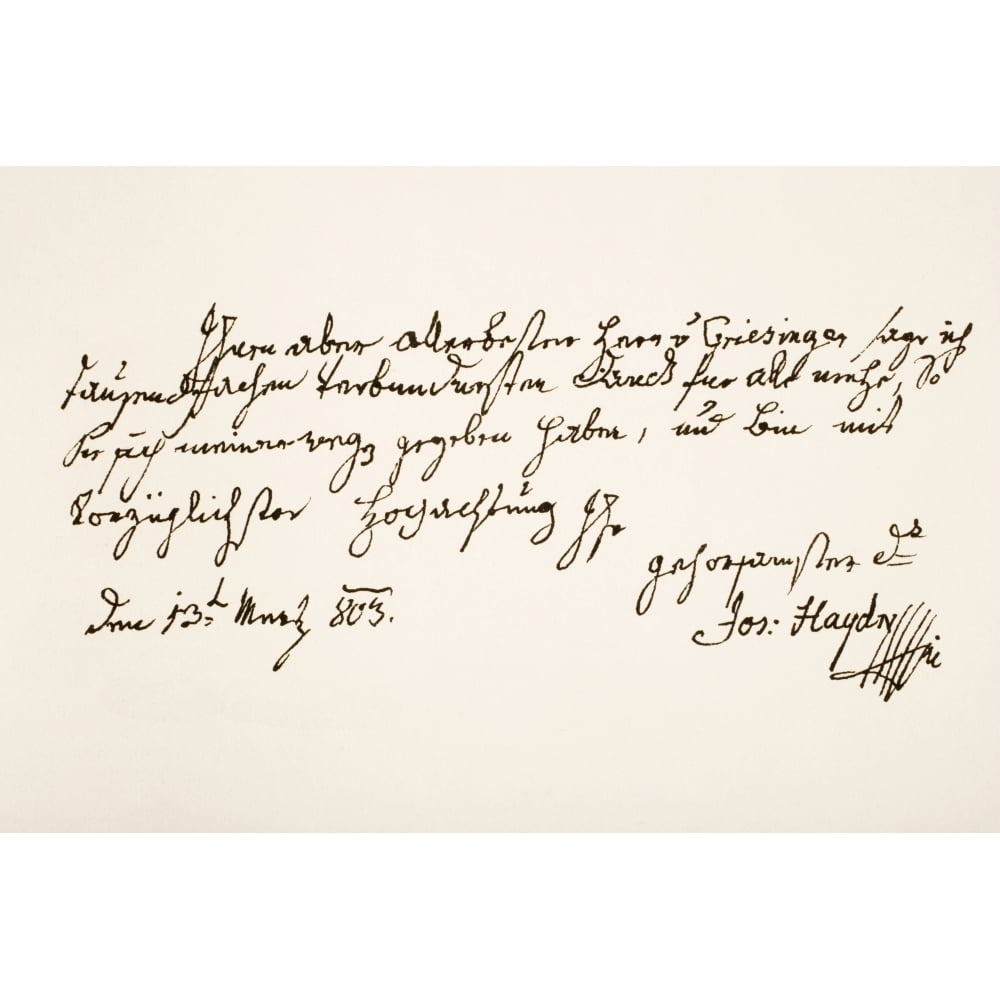 Ihnen aber allerbester Herr v Griesinger sage ich
tausendfachen verbundensten Danck für alle mühe, So
Sie sich meinerweg gegeben haben, und bin mit
Vorzüglichster Hochachtung Ihr
gehorsamster Dr
Jos: Haydn
den 13t Mertz 803.